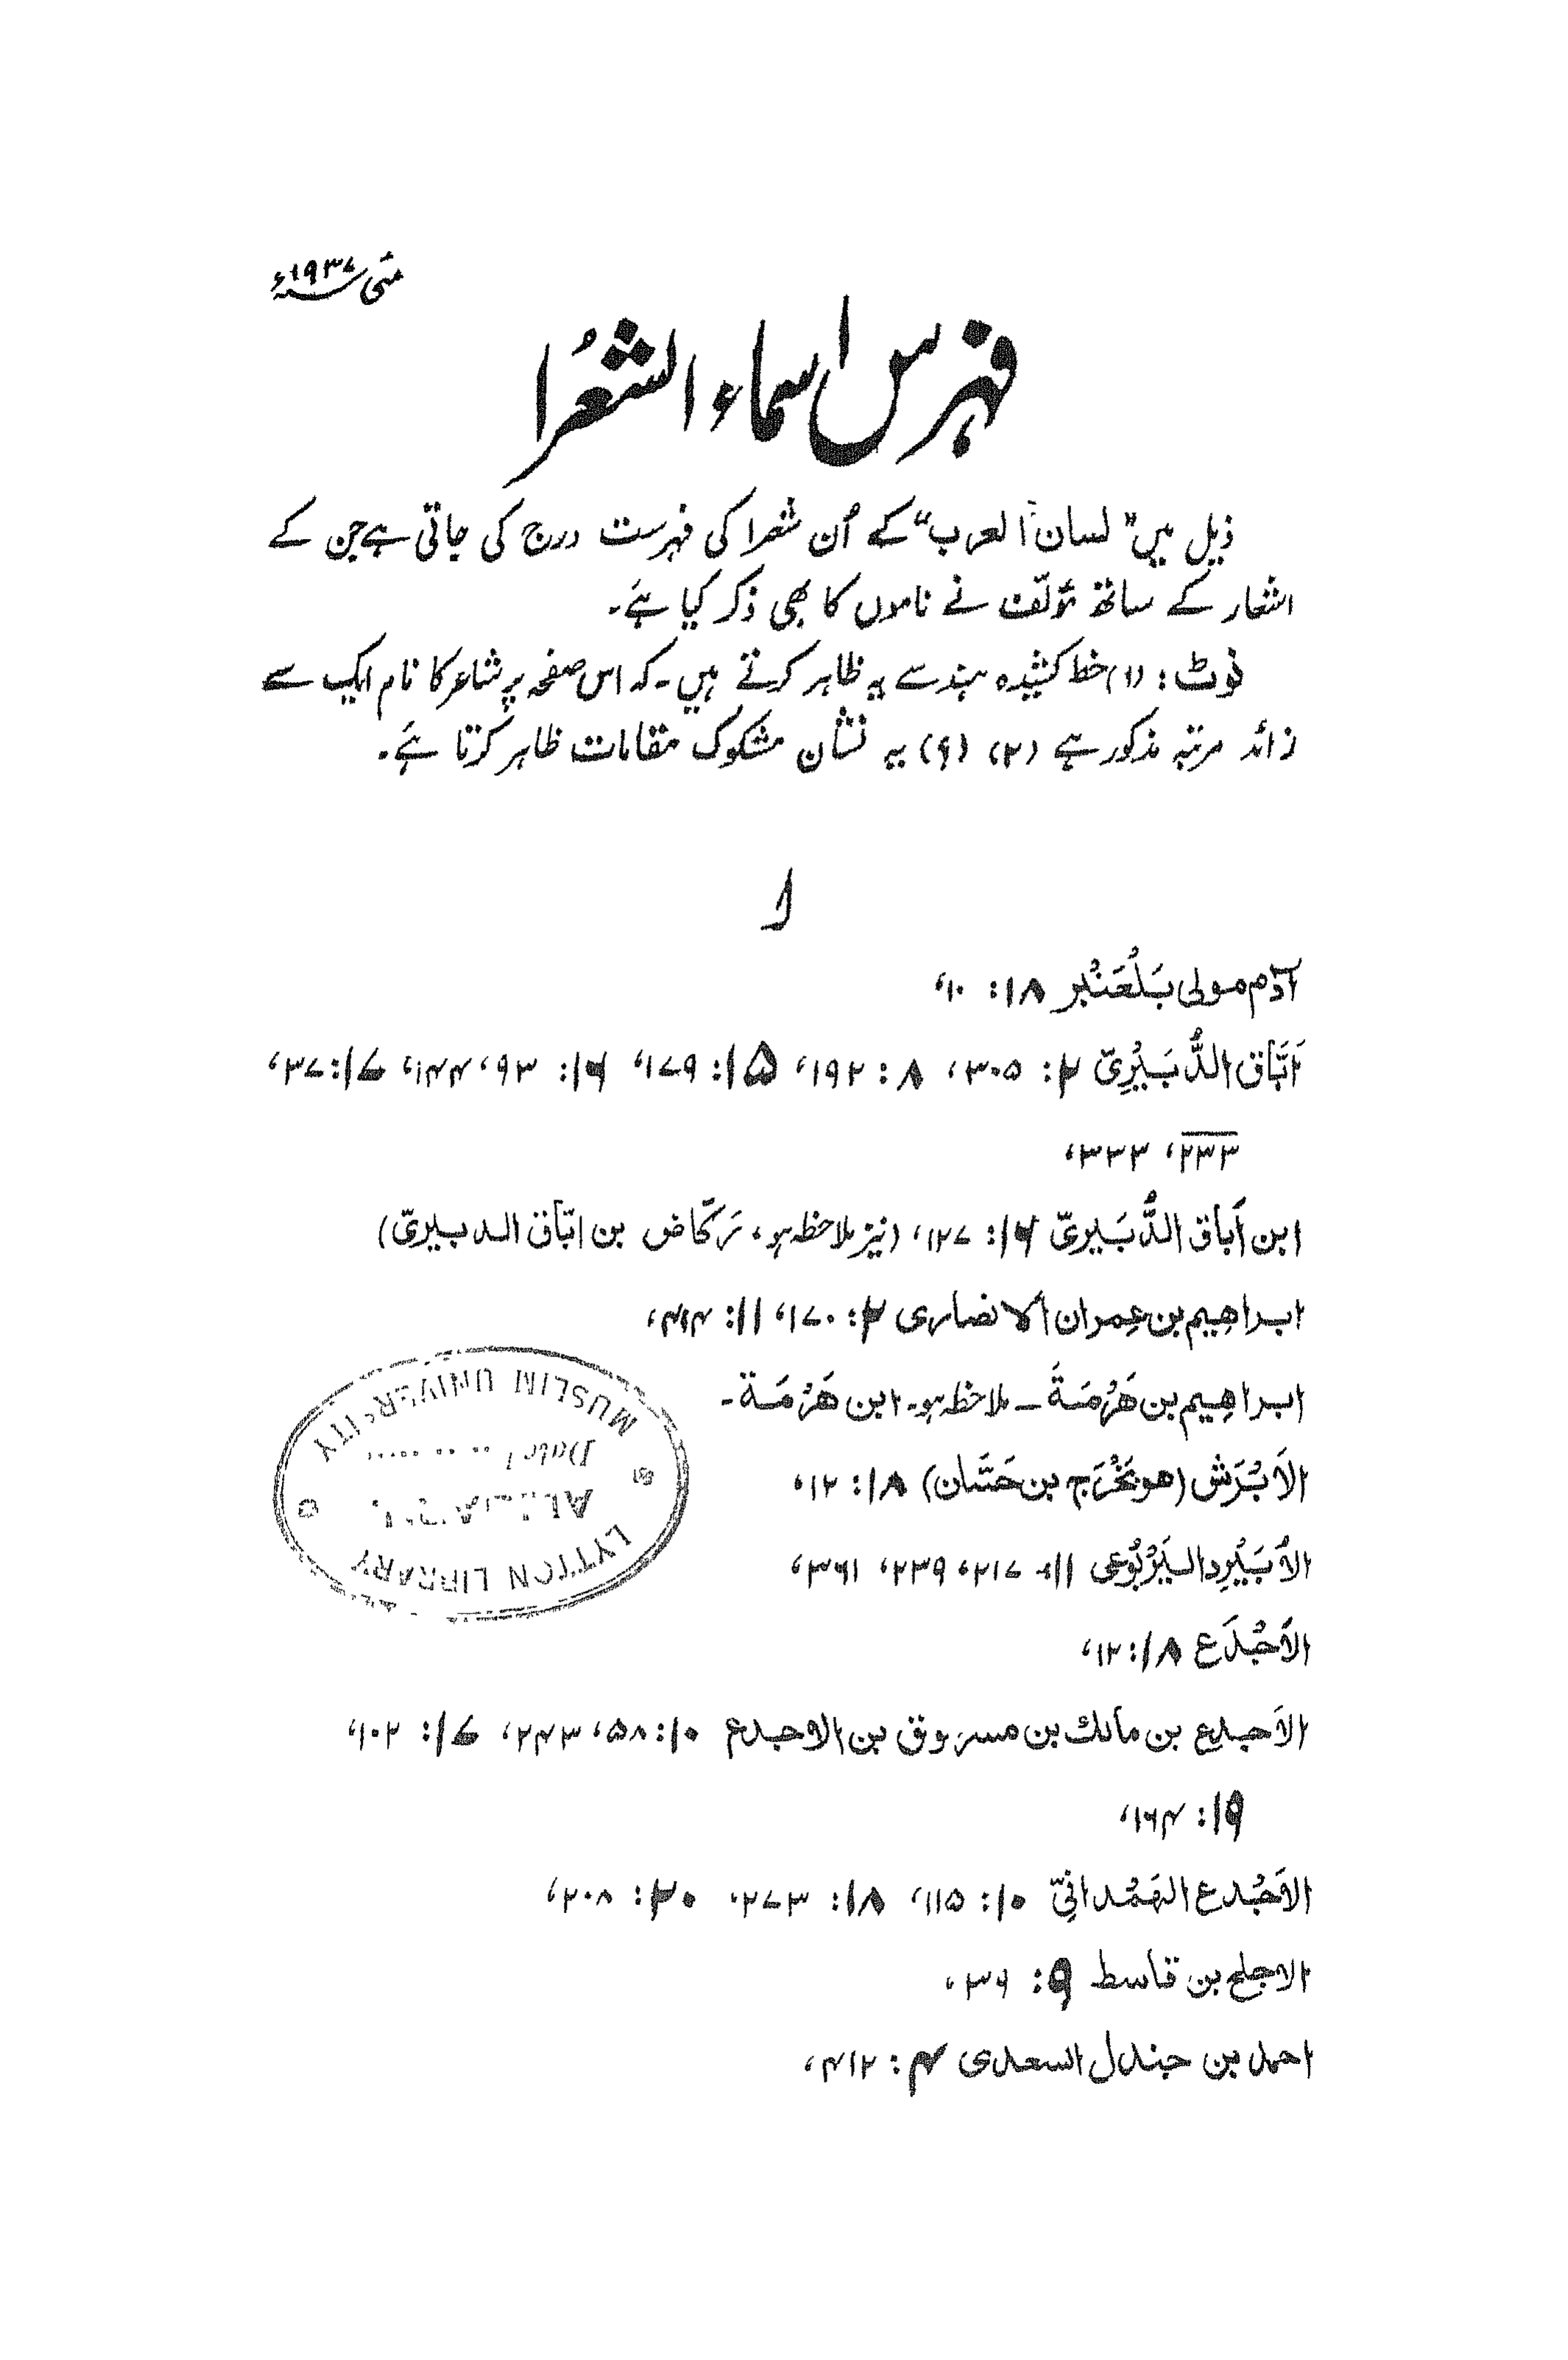 مئی ۱۹۳۷ء
فہرس اسماء الشعرا
ذیل میں "لسان العرب" کے اُن شعرا کی فہرست درج کی جاتی ہے جن کے
اشعار کے ساتھ مؤلّف نے ناموں کا بھی ذکر کیا ہے۔
نوٹ: (۱) خط کشیدہ ہندسے یہ ظاہر کرتے ہیں۔ کہ اس صفحہ پر شاعر کا نام ایک سے
زائد مرتبہ مذکور ہے (۲) (؟) یہ نشان مشکوک مقامات ظاہر کرتا ہے۔
أ
آدَم مولی بَلْعَنْبر ۱۸: ۱۰،
اَبَّاق الدُّبَيْرِیّ ۲: ۳۰۵، ۸: ۱۹۲، ۱۵: ۱۷۹، ۱۶: ۹۳، ۱۴۴، ۱۷: ۳۷،
۲۳۳، ۳۳۳،
ابن أَباق الدُّبَیریّ ۱۶: ۱۲۷، (نیز ملاحظہ ہو، رَکّاض بن ابّاق الدبیریّ)
ابراھیم بن عِمران الانصاری ۲: ۱۷۰، ۱۱: ۴۱۴،
ابراھیم بن ھَرْمَۃَ – ملاحظہ ہو۔ ابن ھَرْمَۃ۔
الاَبْرَش (ھو بَخْرَج بن حَسَّان) ۱۸: ۱۲،
الاُبَیْرِد الیَرْبُوعی ۱۱: ۲۱۷، ۲۳۹، ۳۶۱،
الاَجْدَع ۱۸: ۱۲،
الاَجدع بن مالك بن مسروق بن الاجدع ۱۰: ۵۸، ۲۴۳، ۱۷: ۱۰۲،
۱۹: ۱۶۴،
الاَجْدع الھَمْدانِیّ ۱۰: ۱۱۵، ۱۸: ۲۷۳، ۲۰: ۲۰۸،
الاجلح بن قاسط ۹: ۳۶،
احمد بن جندل السعدی ۴: ۴۱۲،
MUSLIM UNIVERSITY
Date
LYTTON LIBRARY